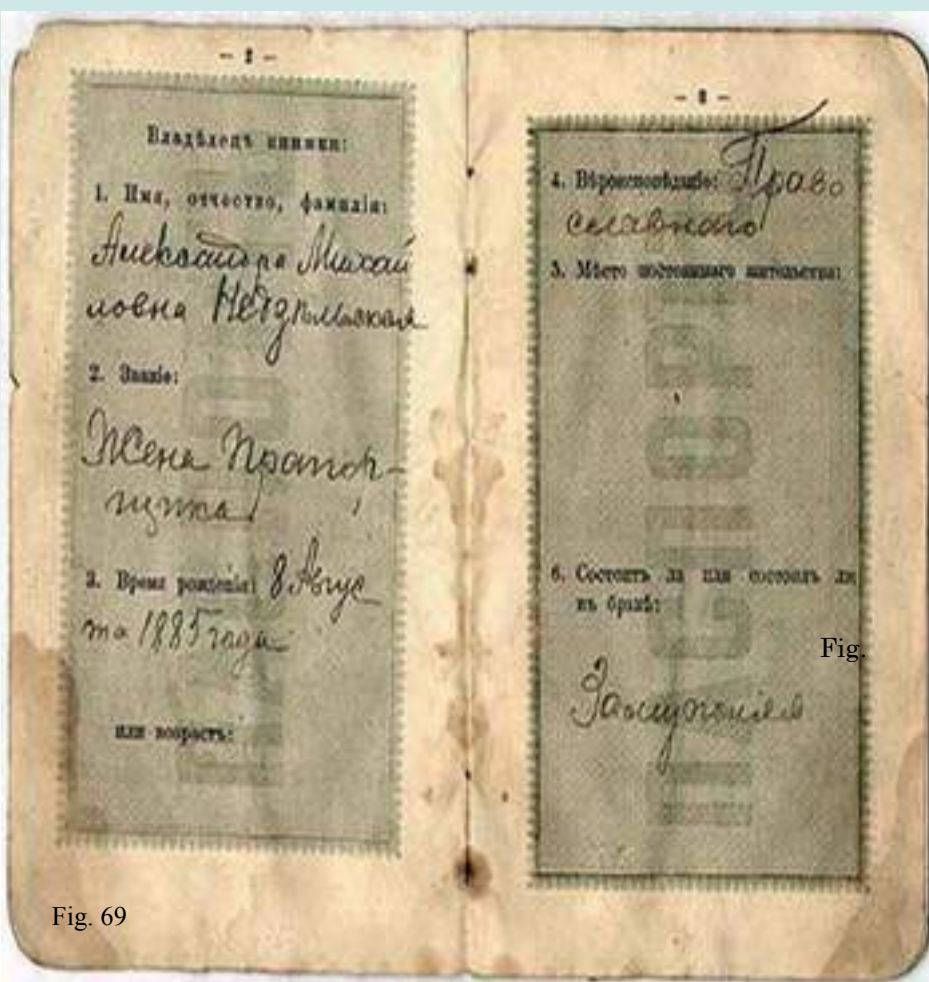 – 2 –
Владѣлецъ книжки:
1. Имя, отчество, фамилія:
Александра Михай
ловна
2. Званіе:
Жена Прапор-
щика
3. Время рожденія: 8 Авгус
та 1885 года
или возрастъ:
Fig. 69
– 3 –
4. Вѣроисповѣданіе: Право
славнаго
5. Мѣсто постояннаго жительства:
6. Состоитъ ли или состоялъ ли
въ бракѣ:
Fig.
Замужняя